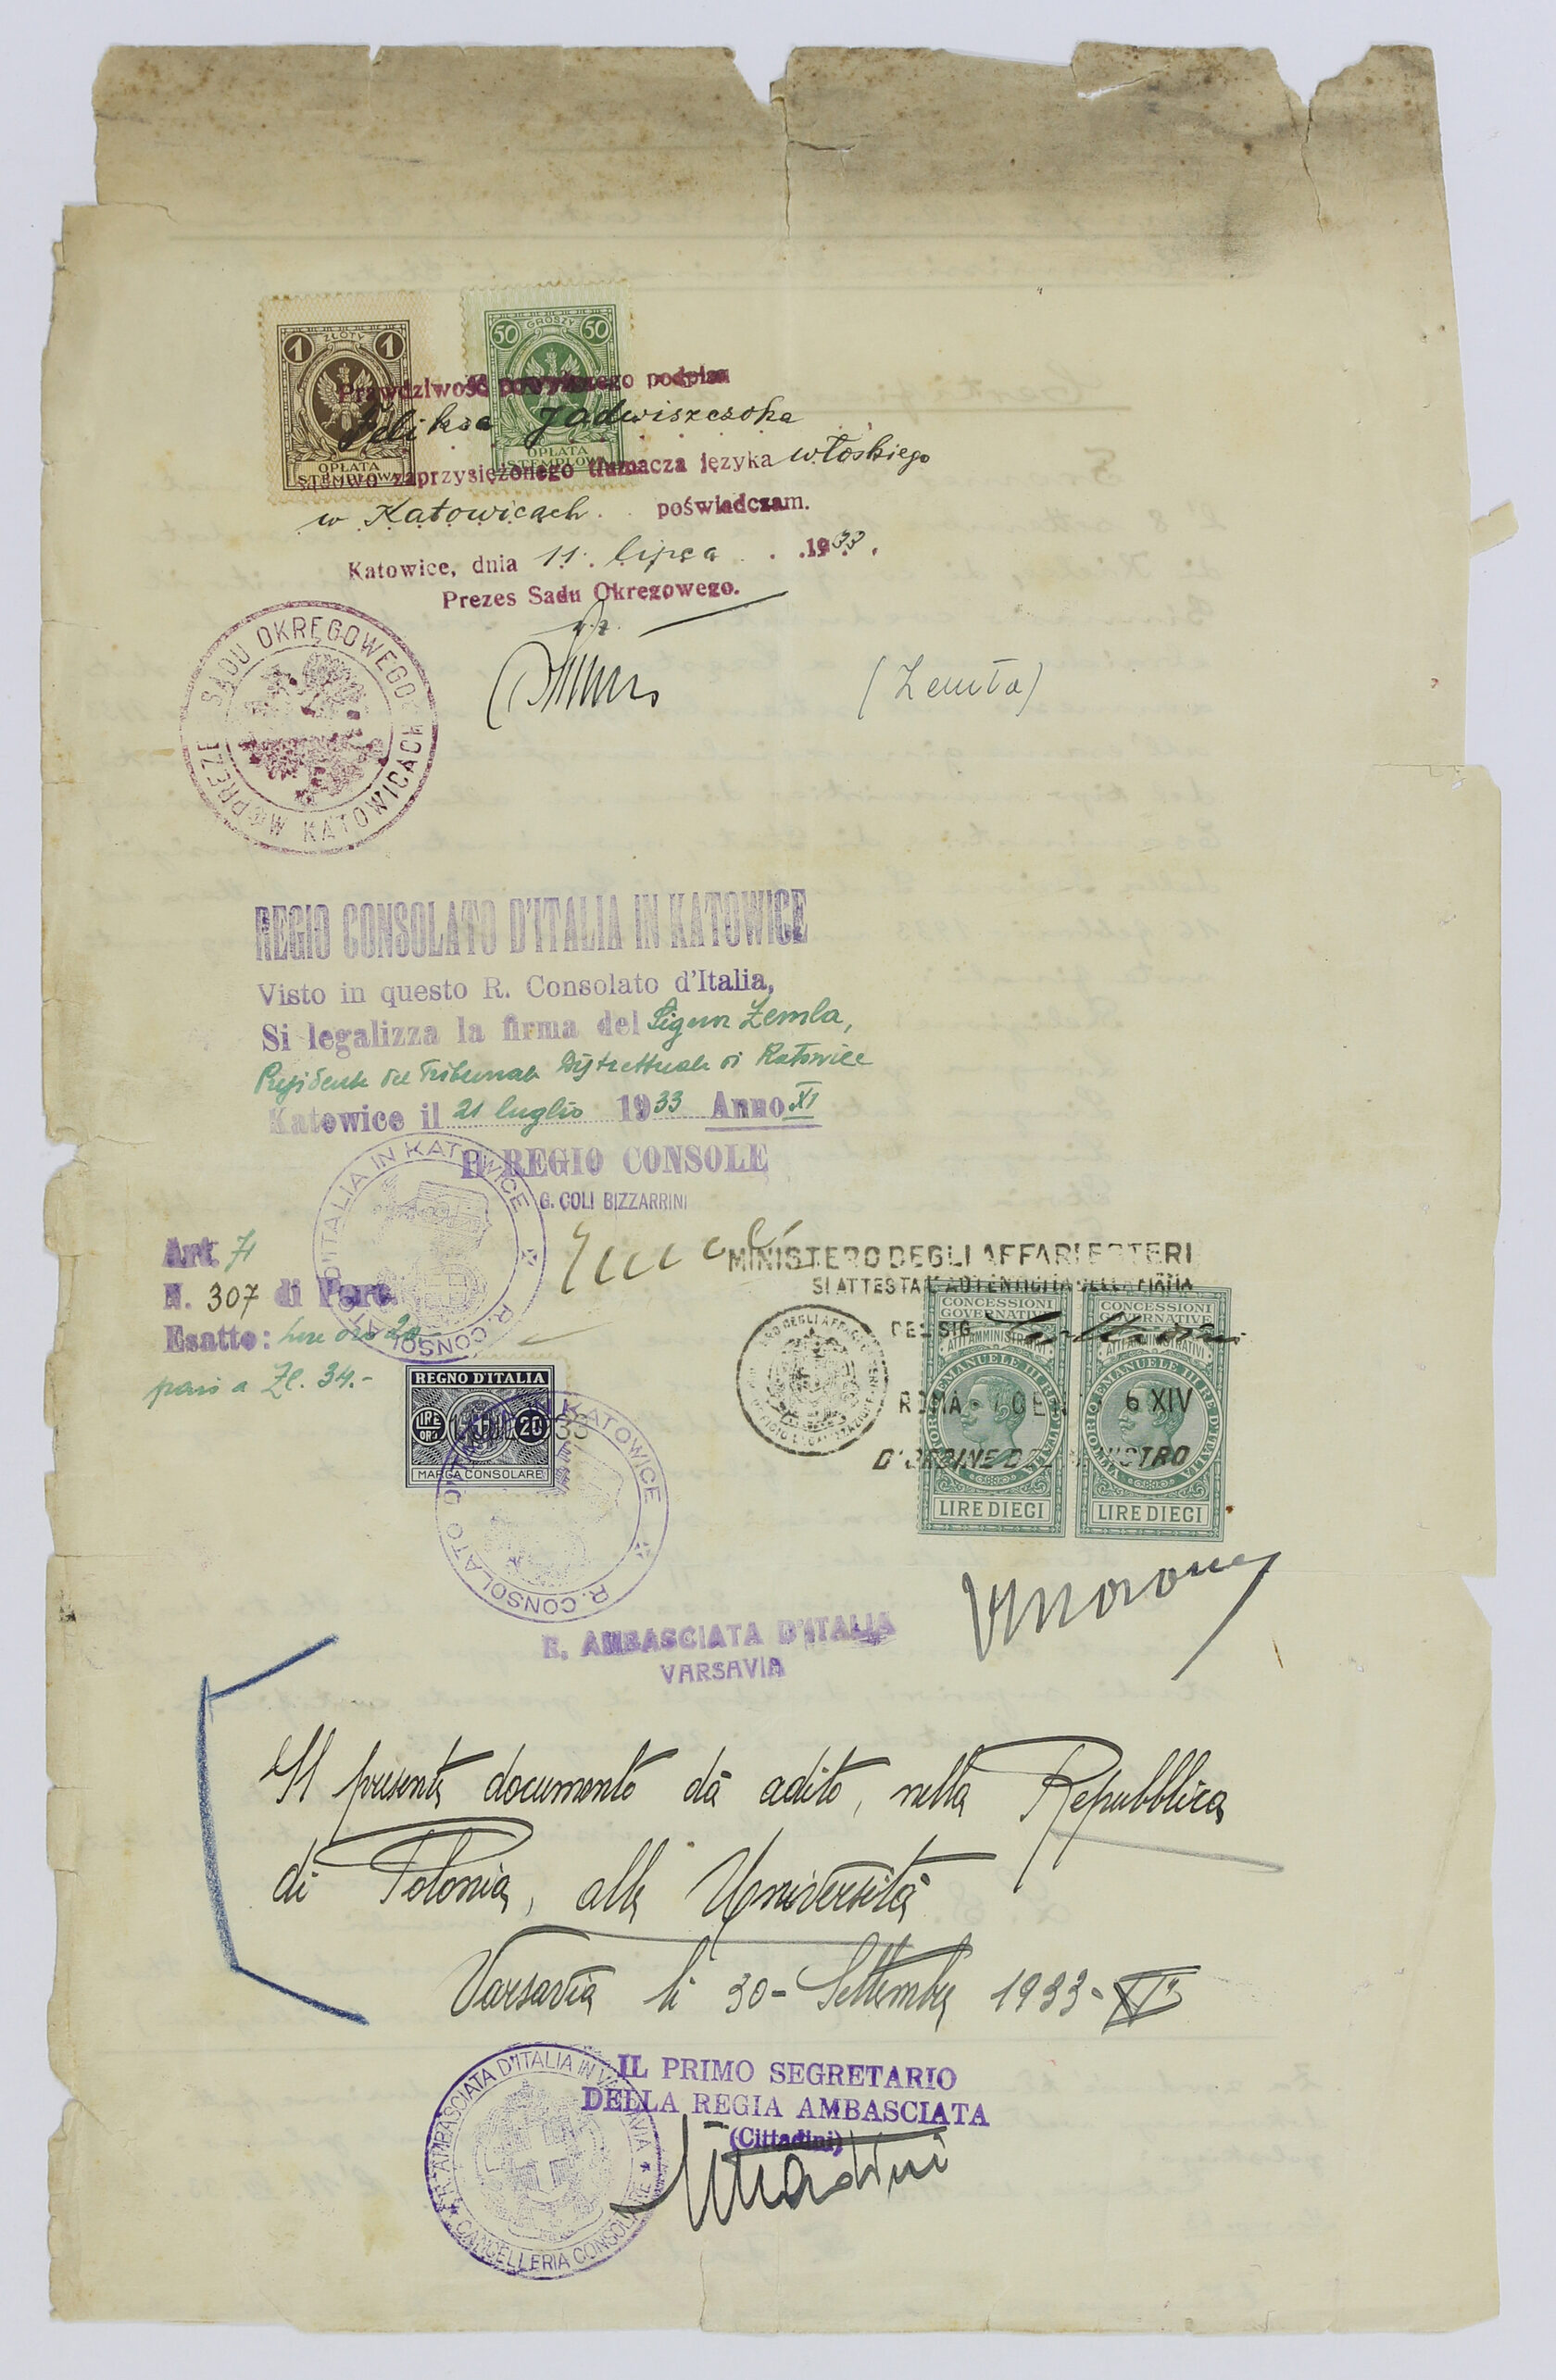 1 ZŁOTY 1
OPŁATA
STEMPLOWA
50 GROSZY 50
OPŁATA
STEMPLOWA
Prawdziwość powyższego podpisu
Feliksa Jadwiszczoka
zaprzysiężonego tłumacza języka włoskiego
w Katowicach. poświadczam.
Katowice, dnia 11. lipca 1933.
Prezes Sadu Okręgowego.
w.z.
(Zemła)
PREZES SĄDU OKRĘGOWEGO W KATOWICACH
REGIO CONSOLATO D'ITALIA IN KATOWICE
Visto in questo R. Consolato d'Italia,
Si legalizza la firma del Signor Zemla,
Presidente del Tribunale Distrettuale di Katowice
Katowice il 21 luglio 1933 Anno XI
IL REGIO CONSOLE
G. COLI BIZZARRINI
R. CONSOLATO D'ITALIA IN KATOWICE
Art. 71
N. 307 di Perc.
Esatte: lire oro 20
pari a Zl. 34.-
REGNO D'ITALIA
LIRE ORO 20
MARCA CONSOLARE
R. CONSOLATO D'ITALIA IN KATOWICE
MINISTERO DEGLI AFFARI ESTERI
SI ATTESTA L'AUTENTICITA DELLA FIRMA
DEL SIG.
ROMA 6 XIV
D'ORDINE DEL MINISTRO
CONCESSIONI
GOVERNATIVE
ATTI AMMINISTRATIVI
VITTORIO EMANUELE III RE D'ITALIA
LIRE DIECI
CONCESSIONI
GOVERNATIVE
ATTI AMMINISTRATIVI
VITTORIO EMANUELE III RE D'ITALIA
LIRE DIECI
R. AMBASCIATA D'ITALIA
VARSAVIA
Il presente documento dà adito, nella Repubblica
di Polonia, alla Università
Varsavia li 30 - Settembre 1933 - XI°
IL PRIMO SEGRETARIO
DELLA REGIA AMBASCIATA
(Cittadini)
Cittadini
R. AMBASCIATA D'ITALIA IN VARSAVIA
CANCELLERIA CONSOLARE